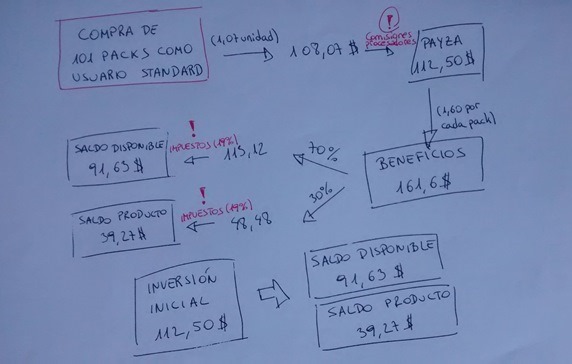 COMPRA DE
101 PACKS COMO
USUARIO STANDARD
(1,07 unidad)
108,07 $
!
Comisiones
procesadores
PAYZA
112,50 $
(1,60 por
cada pack)
BENEFICIOS
161,6 $
70%
113,12
!
IMPUESTOS (19%)
SALDO DISPONIBLE
91,63 $
30%
48,48
!
IMPUESTOS (19%)
SALDO PRODUCTO
39,27 $
INVERSIÓN
INICIAL
112,50 $
SALDO DISPONIBLE
91,63 $
SALDO PRODUCTO
39,27 $